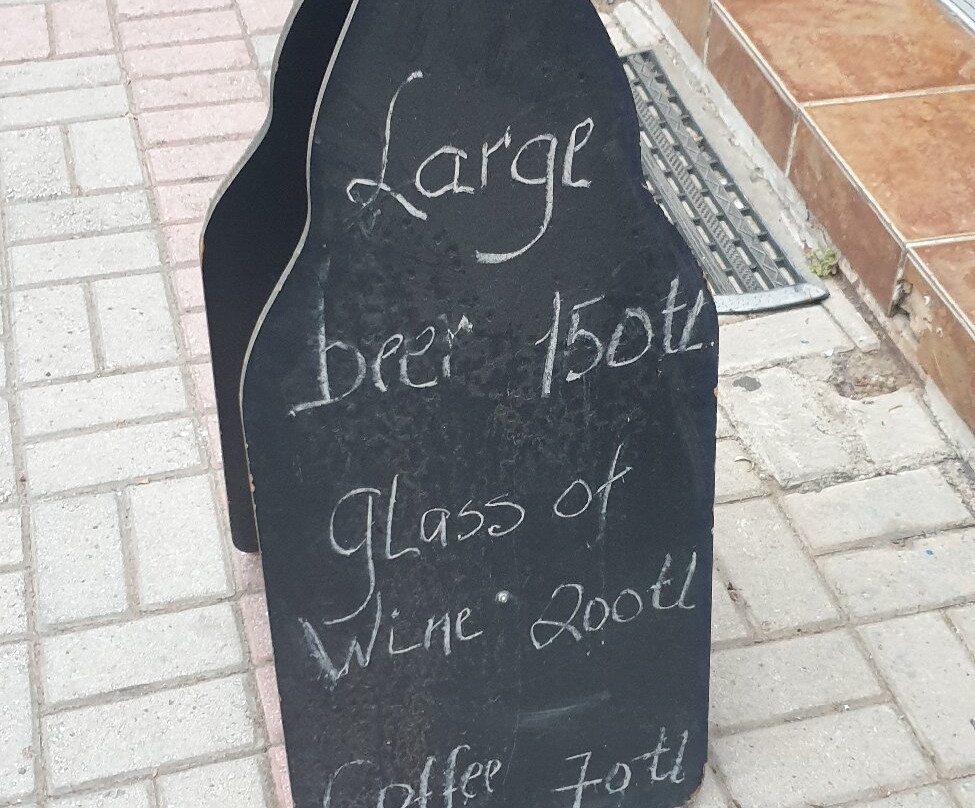 Large
beer 150tl.
glass of
Wine 200tl
Coffee 70tl